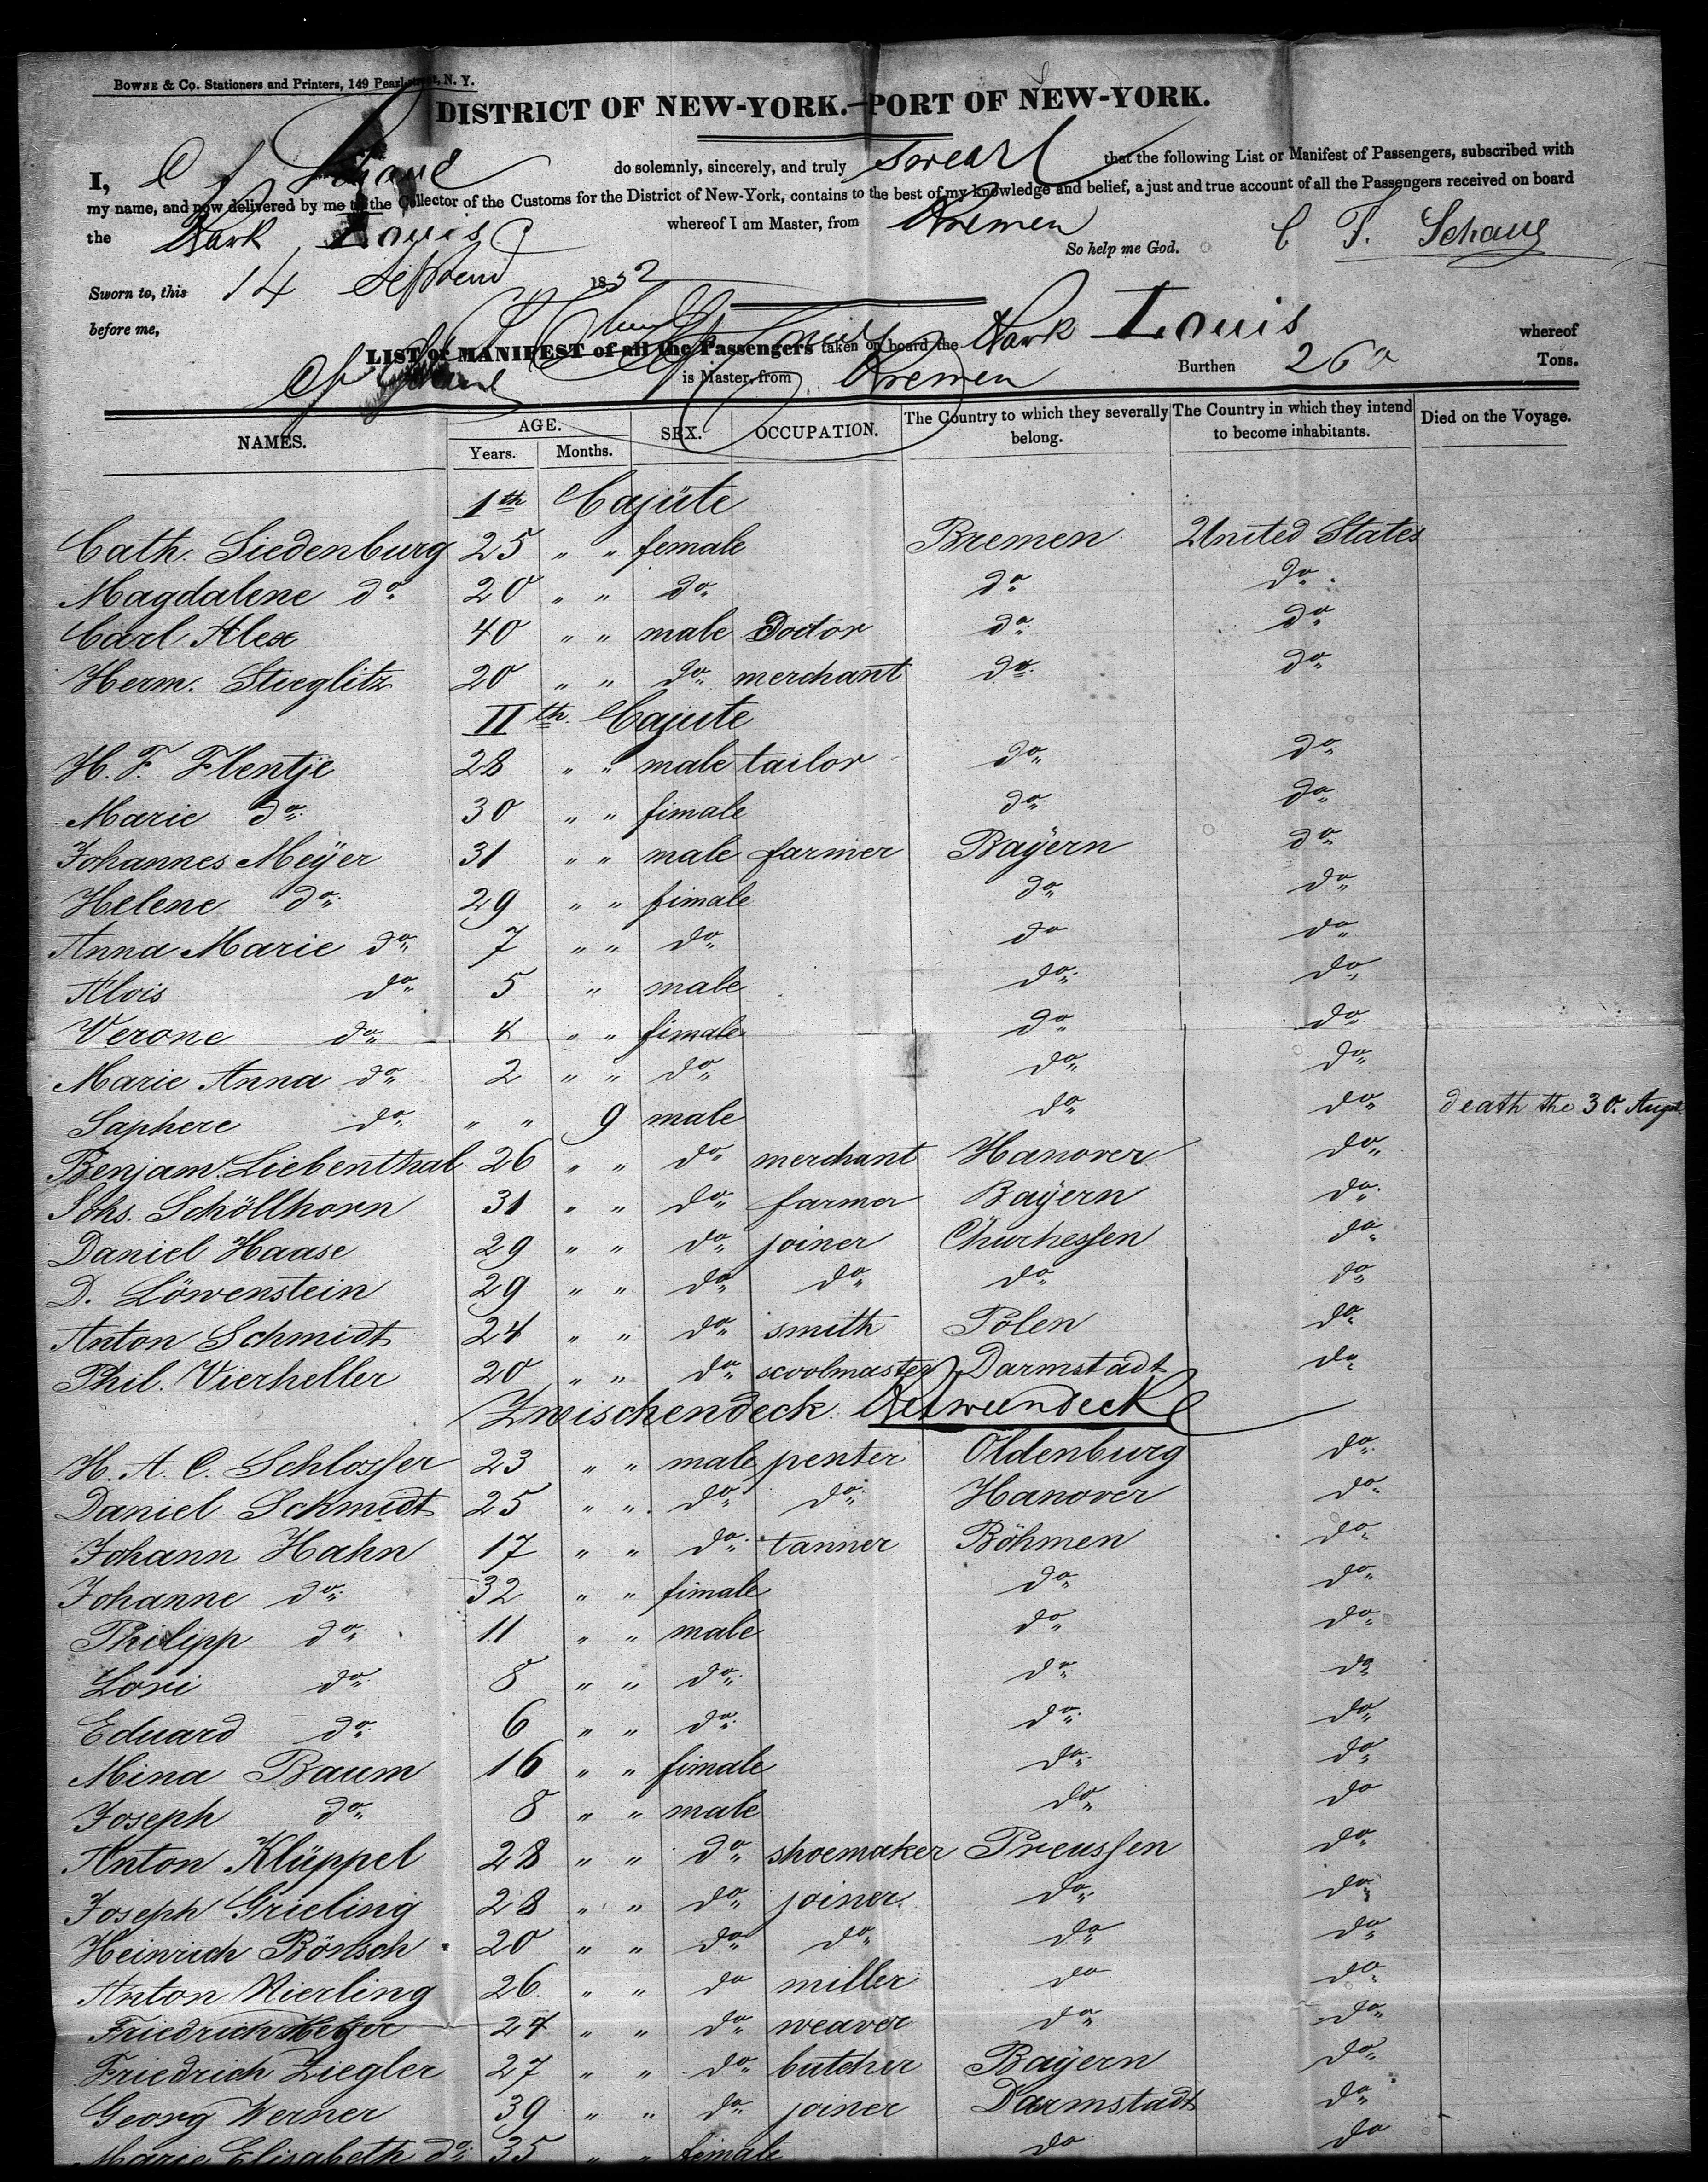 BOWNE & CO. Stationers and Printers, 149 Pearl-street, N. Y.
DISTRICT OF NEW-YORK.—PORT OF NEW-YORK.
I, do solemnly, sincerely, and truly swear that the following List or Manifest of Passengers, subscribed with
my name, and now delivered by me to the Collector of the Customs for the District of New-York, contains to the best of my knowledge and belief, a just and true account of all the Passengers received on board
the Bark Louis whereof I am Master, from Bremen
So help me God. C F.
Sworn to, this 14 1852
before me,
LIST or MANIFEST of all the Passengers taken on board the Bark Louis whereof
is Master, from Bremen Burthen 260 Tons.
NAMES. AGE. Years. Months. SEX. OCCUPATION. The Country to which they severally belong. The Country in which they intend to become inhabitants. Died on the Voyage.
1th Cajüte
Cath. Siedenburg 25 " " female Bremen United States
Magdalene do 20 " " do do do
Carl Alex 40 " " male Doctor do do
Herm. Stieglitz 20 " " do merchant do do
IIth Cajute
H. F. Flentje 28 " " male tailor do do
Marie do 30 " " fimale do do
Johannes Meÿer 31 " " male farmer Baÿern do
Helene do 29 " " fimale do do
Anna Marie do 7 " " do do do
Alois do 5 " male do do
Verone do 4 " " fimale do do
Marie Anna do 2 " " do do do
Saphere do " " 9 male do do death the 30. Augst.
Benjam. Liebenthal 26 " " do merchant Hanover do
Johs. Schöllhorn 31 " " do farmer Baÿern do
Daniel Haase 29 " " do joiner Churhessen do
D. Löwenstein 29 " " do do do do
Anton Schmidt 24 " " do smith Polen do
Phil. Vierheller 20 " " do scoolmaster Darmstadt do
Zwischendeck Betweendeck
H. A. C. Schlosser 23 " " male penter Oldenburg do
Daniel Schmidt 25 " " do do Hanover do
Johann Hahn 17 " " do tanner Böhmen do
Johanne do 32 " " fimale do do
Philipp do 11 " " male do do
Lori do 8 " " do do do
Eduard do 6 " " do do do
Mina Baum 16 " " fimale do do
Joseph do 8 " " male do do
Anton Klüppel 28 " " do shoemaker Preussen do
Joseph Grieling 28 " " do joiner do do
Heinrich Bönsch 20 " " do do do do
Anton Nierling 26 " " do miller do do
Friedrich 24 " " do weaver do do
Friedrich Ziegler 27 " " do butcher Baÿern do
Georg Werner 39 " " do joiner Darmstadt do
Marie Elisabeth do 35 " " fimale do do